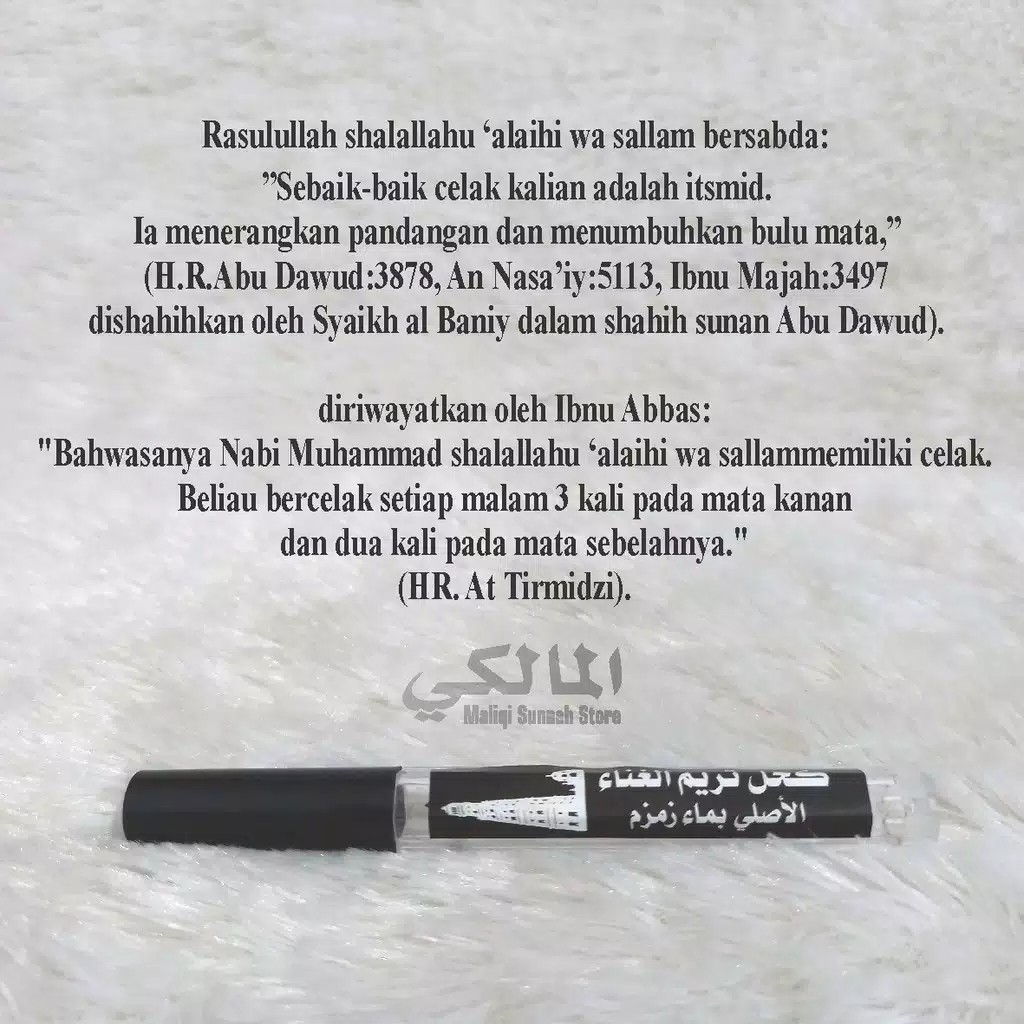 Rasulullah shalallahu ‘alaihi wa sallam bersabda:
”Sebaik-baik celak kalian adalah itsmid.
Ia menerangkan pandangan dan menumbuhkan bulu mata,”
(H.R.Abu Dawud:3878, An Nasa’iy:5113, Ibnu Majah:3497
dishahihkan oleh Syaikh al Baniy dalam shahih sunan Abu Dawud).
diriwayatkan oleh Ibnu Abbas:
"Bahwasanya Nabi Muhammad shalallahu ‘alaihi wa sallammemiliki celak.
Beliau bercelak setiap malam 3 kali pada mata kanan
dan dua kali pada mata sebelahnya."
(HR. At Tirmidzi).
المالكي
Maliqi Sunnah Store
كحل تريم الغناء
الأصلي بماء زمزم